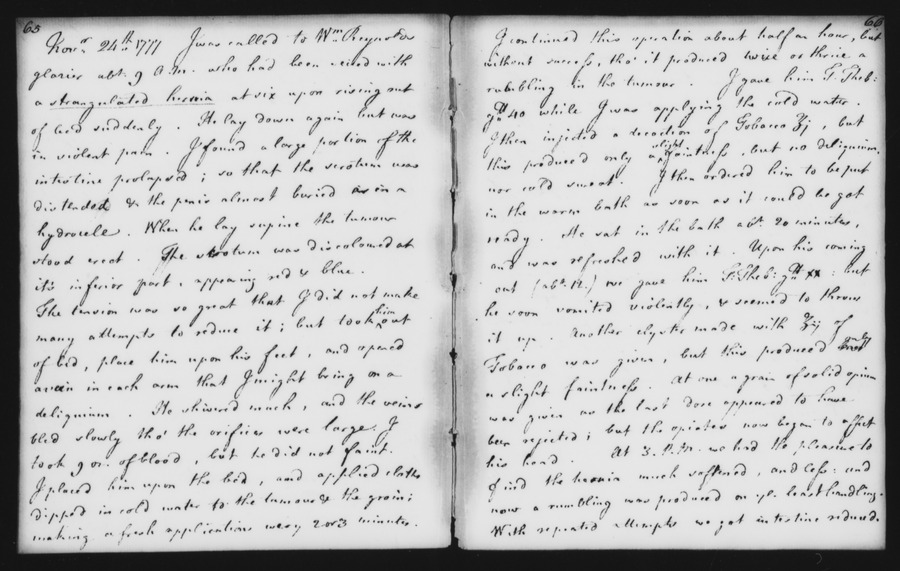 65
Novr. 24th 1777 I was called to Wm. Reynolds
glazier abt. 9 A.M. who had been seized with
a strangulated hernia at six upon rising out
of bed suddenly. He lay down again but was
in violent pain. I found a large portion of the
intestine prolapsed; so that the scrotum was
distended & the penis almost buried as in a
hydrocele. When he lay supine the tumour
stood erect. The scrotum was discoloured at
it's inferior part, appearing red & blue.
The tension was so great that I did not make
many attempts to reduce it; but took him out
of bed, place him upon his feet, and opened
a vein in each arm that I might bring on a
deliquium. He shivered much, and the veins
bled slowly tho' the orifices were large. I
took 9 oz. of blood, but he did not faint.
I placed him upon the bed, and applied cloths
dipped in cold water to the tumour & the groin;
making a fresh application every 2 or 3 minutes.
66
I continued this operation about half an hour, but
without success, tho' it produced twice or thrice a
rumbling in the tumour. I gave him T. Theb:
gtt 40 while I was applying the cold water.
I then injected a decoction of Tobacco ʒj, but
this produced only a slight faintness, but no deliquium,
nor cold sweat. I then ordered him to be put
in the warm bath as soon as it could be got
ready. He sat in the bath abt. 20 minutes,
and was refreshed with it. Upon his coming
out (abt. 12.) we gave him T. Theb: gtt xx: but
he soon vomited violently, & seemed to throw
it up. Another clyster made with ʒij of
Tobacco was given, but this produced only
a slight faintness. At one a grain of solid opium
was given as the last dose appeared to have
been rejected; but the opiates now began to affect
his head. At 3. P.M. we had the pleasure to
find the hernia much softened, and less: and
now a rumbling was produced on ye. least handling.
With repeated attempts we got intestine reduced.